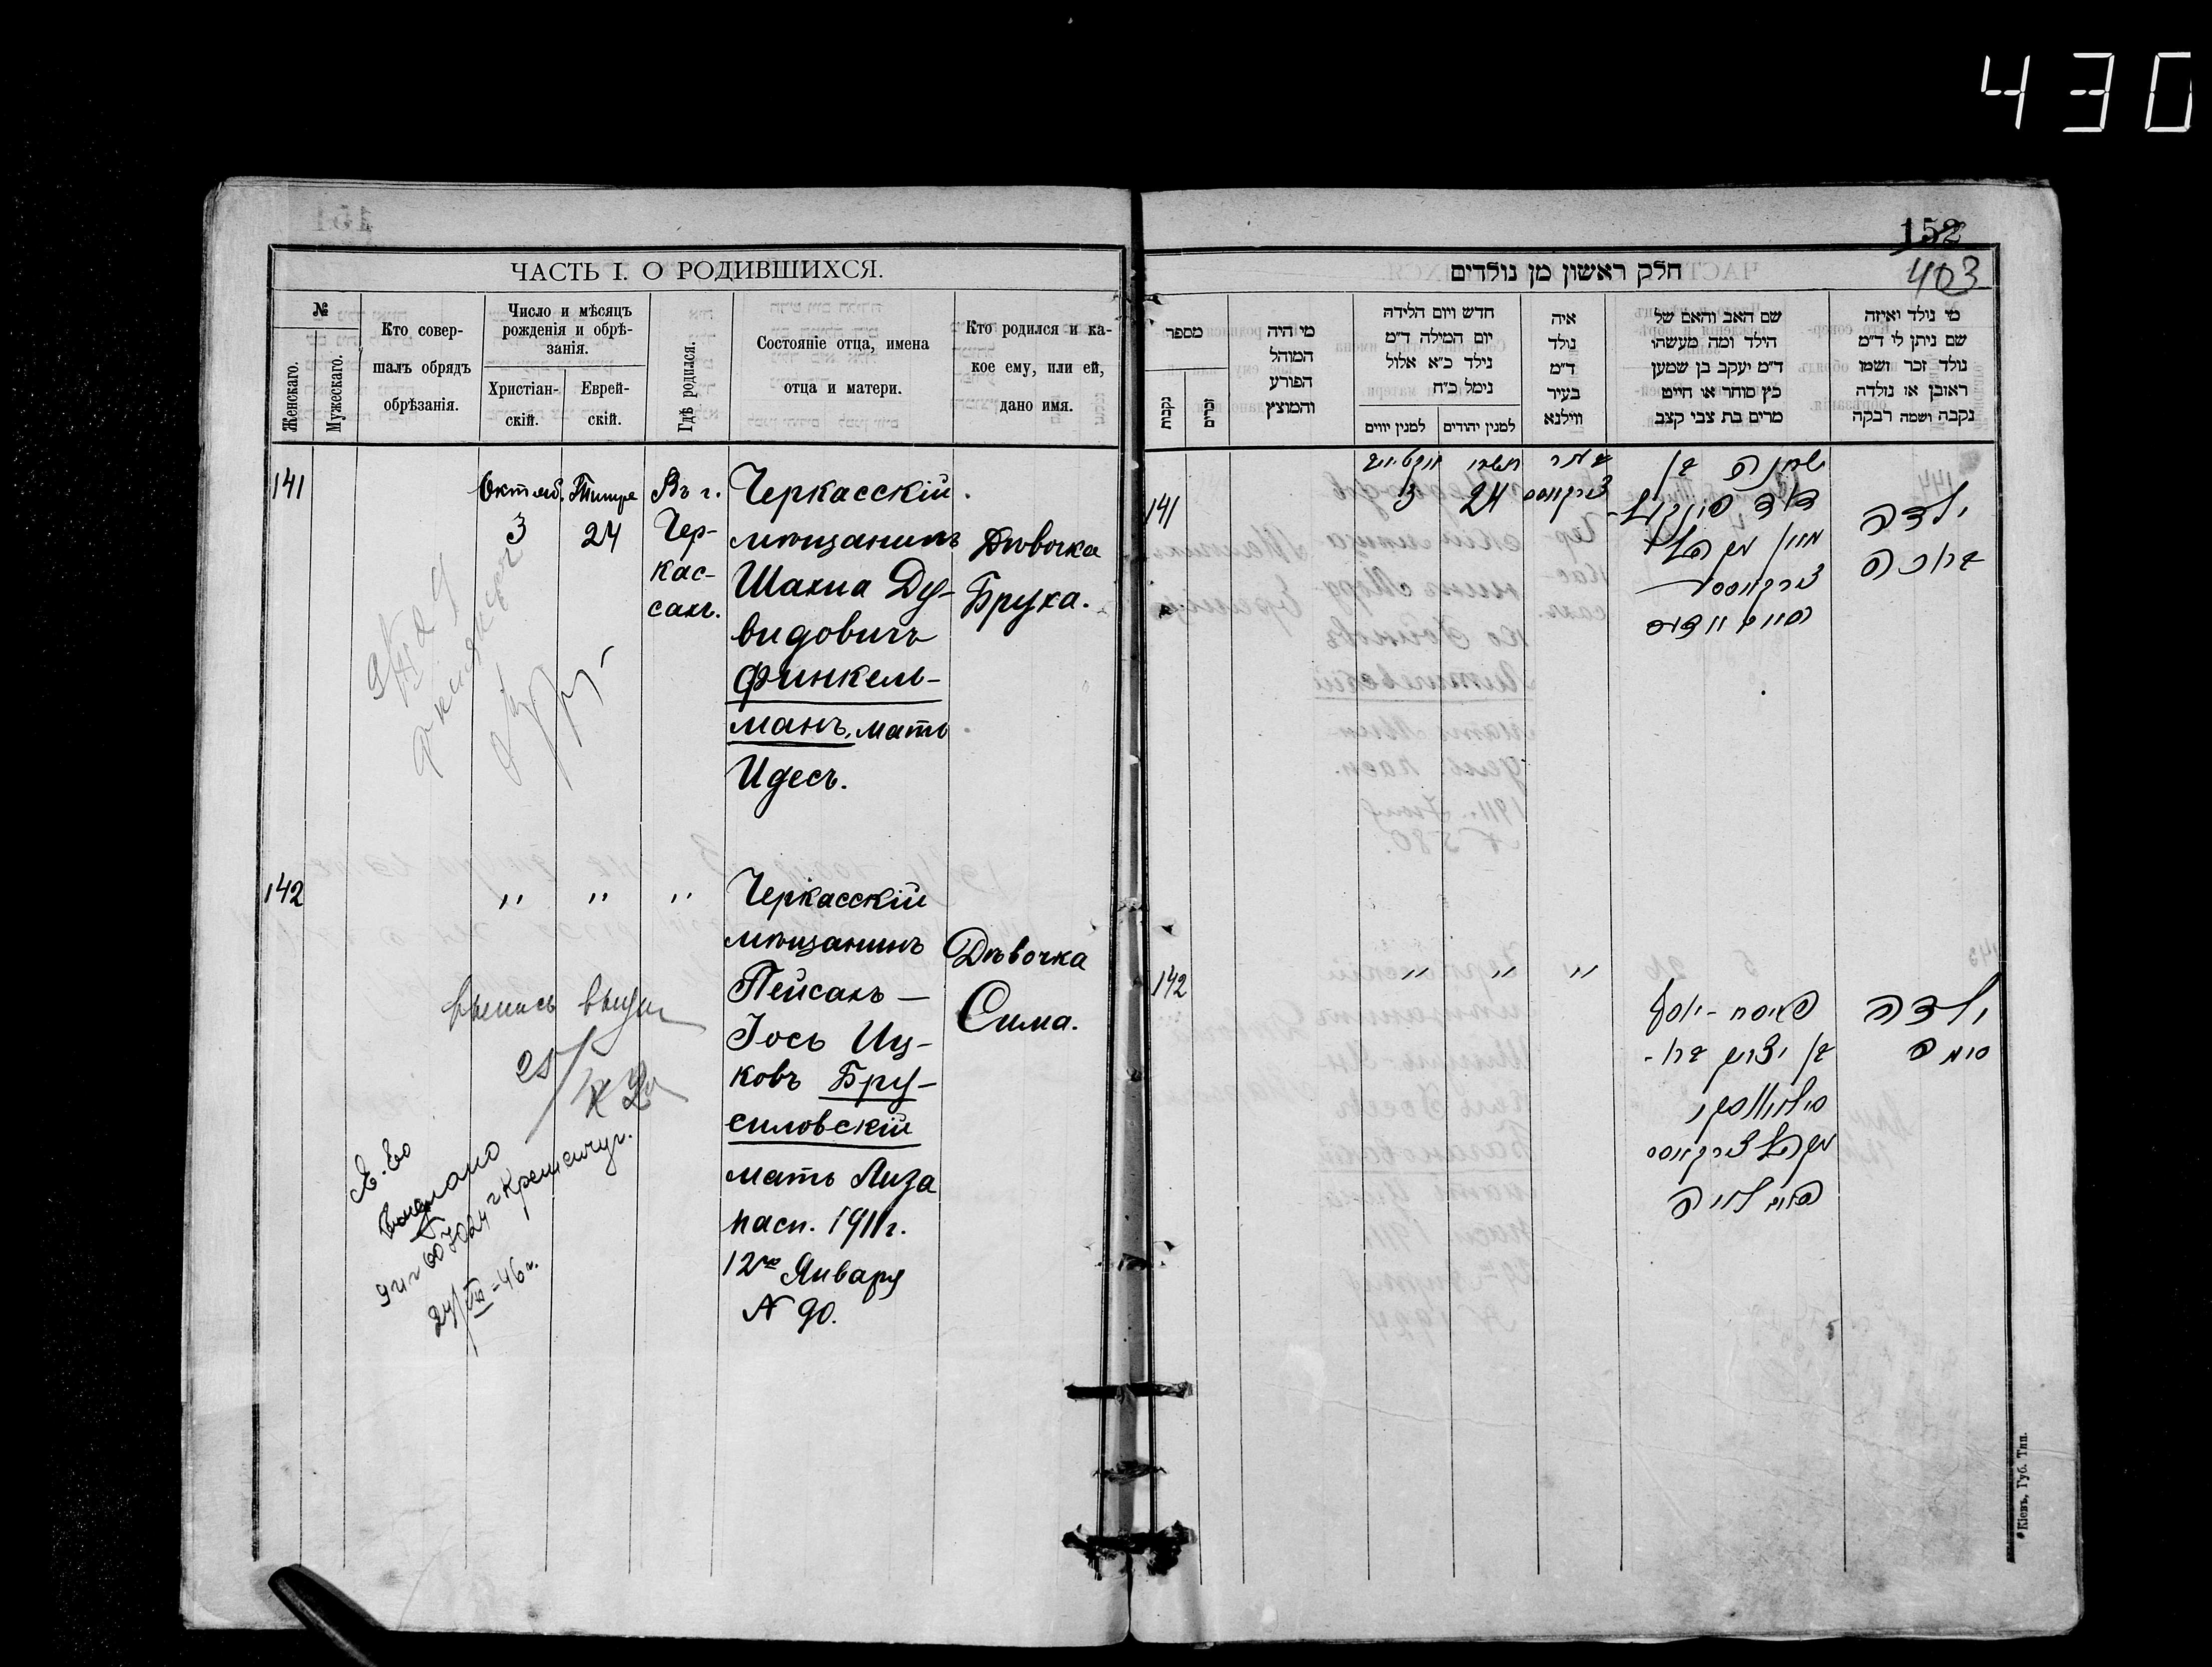 430
152
403
ЧАСТЬ I. О РОДИВШИХСЯ.
№
Женскаго.
Мужескаго.
Кто совер-
шалъ обрядъ
обрѣзанія.
Число и мѣсяцъ
рожденія и обрѣ-
занія.
Христіан-
скій.
Еврей-
скій.
Гдѣ родился.
Состояніе отца, имена
отца и матери.
Кто родился и ка-
кое ему, или ей,
дано имя.
141
Октяб.
3
Тишре
24
Въ г.
Чер-
кас-
сахъ.
Черкасскій
мѣщанинъ
Шахна Ду-
видовичъ
Финкель-
манъ, мать
Идесъ.
Дѣвочка
Бруха.
142
" " "
Черкасскій
мѣщанинъ
Пейсахъ —
Іось Иц-
ковъ Бру-
силовскій
мать Лиза
пасп. 1911 г.
12го Января
№ 90.
Дѣвочка
Сима.
24/VII-46 г.
חלק ראשון מן נולדים
מספר
נקבות
זכרים
מי היה
המוהל
הפורע
והמוצץ
חדש ויום הלידה
יום המילה ד״מ
נילד כ״א אלול
נימל כ״ח
למנין יווים
למנין יהודים
איה
נולד
ד״מ
בעיר
ווילנא
שם האב והאם של
הילד ומה מעשהו
ד״מ יעקב בן שמעון
כץ סוחר או חייט
מרים בת צבי קצב
מי נולד ואיזה
שם ניתן לי ד״מ
נולד זכר ושמו
ראובן או נולדה
נקבה ושמה רבקה
141
3
תשרי
24
שחנה בן
דוד פינקעל-
מאן מקהל
ילדה
ברכה
142
" " "
פייסח - יוסף
בן יצחק ברו-
סילאווסקי
ילדה
סימה
Кіевъ, Губ. Тип.